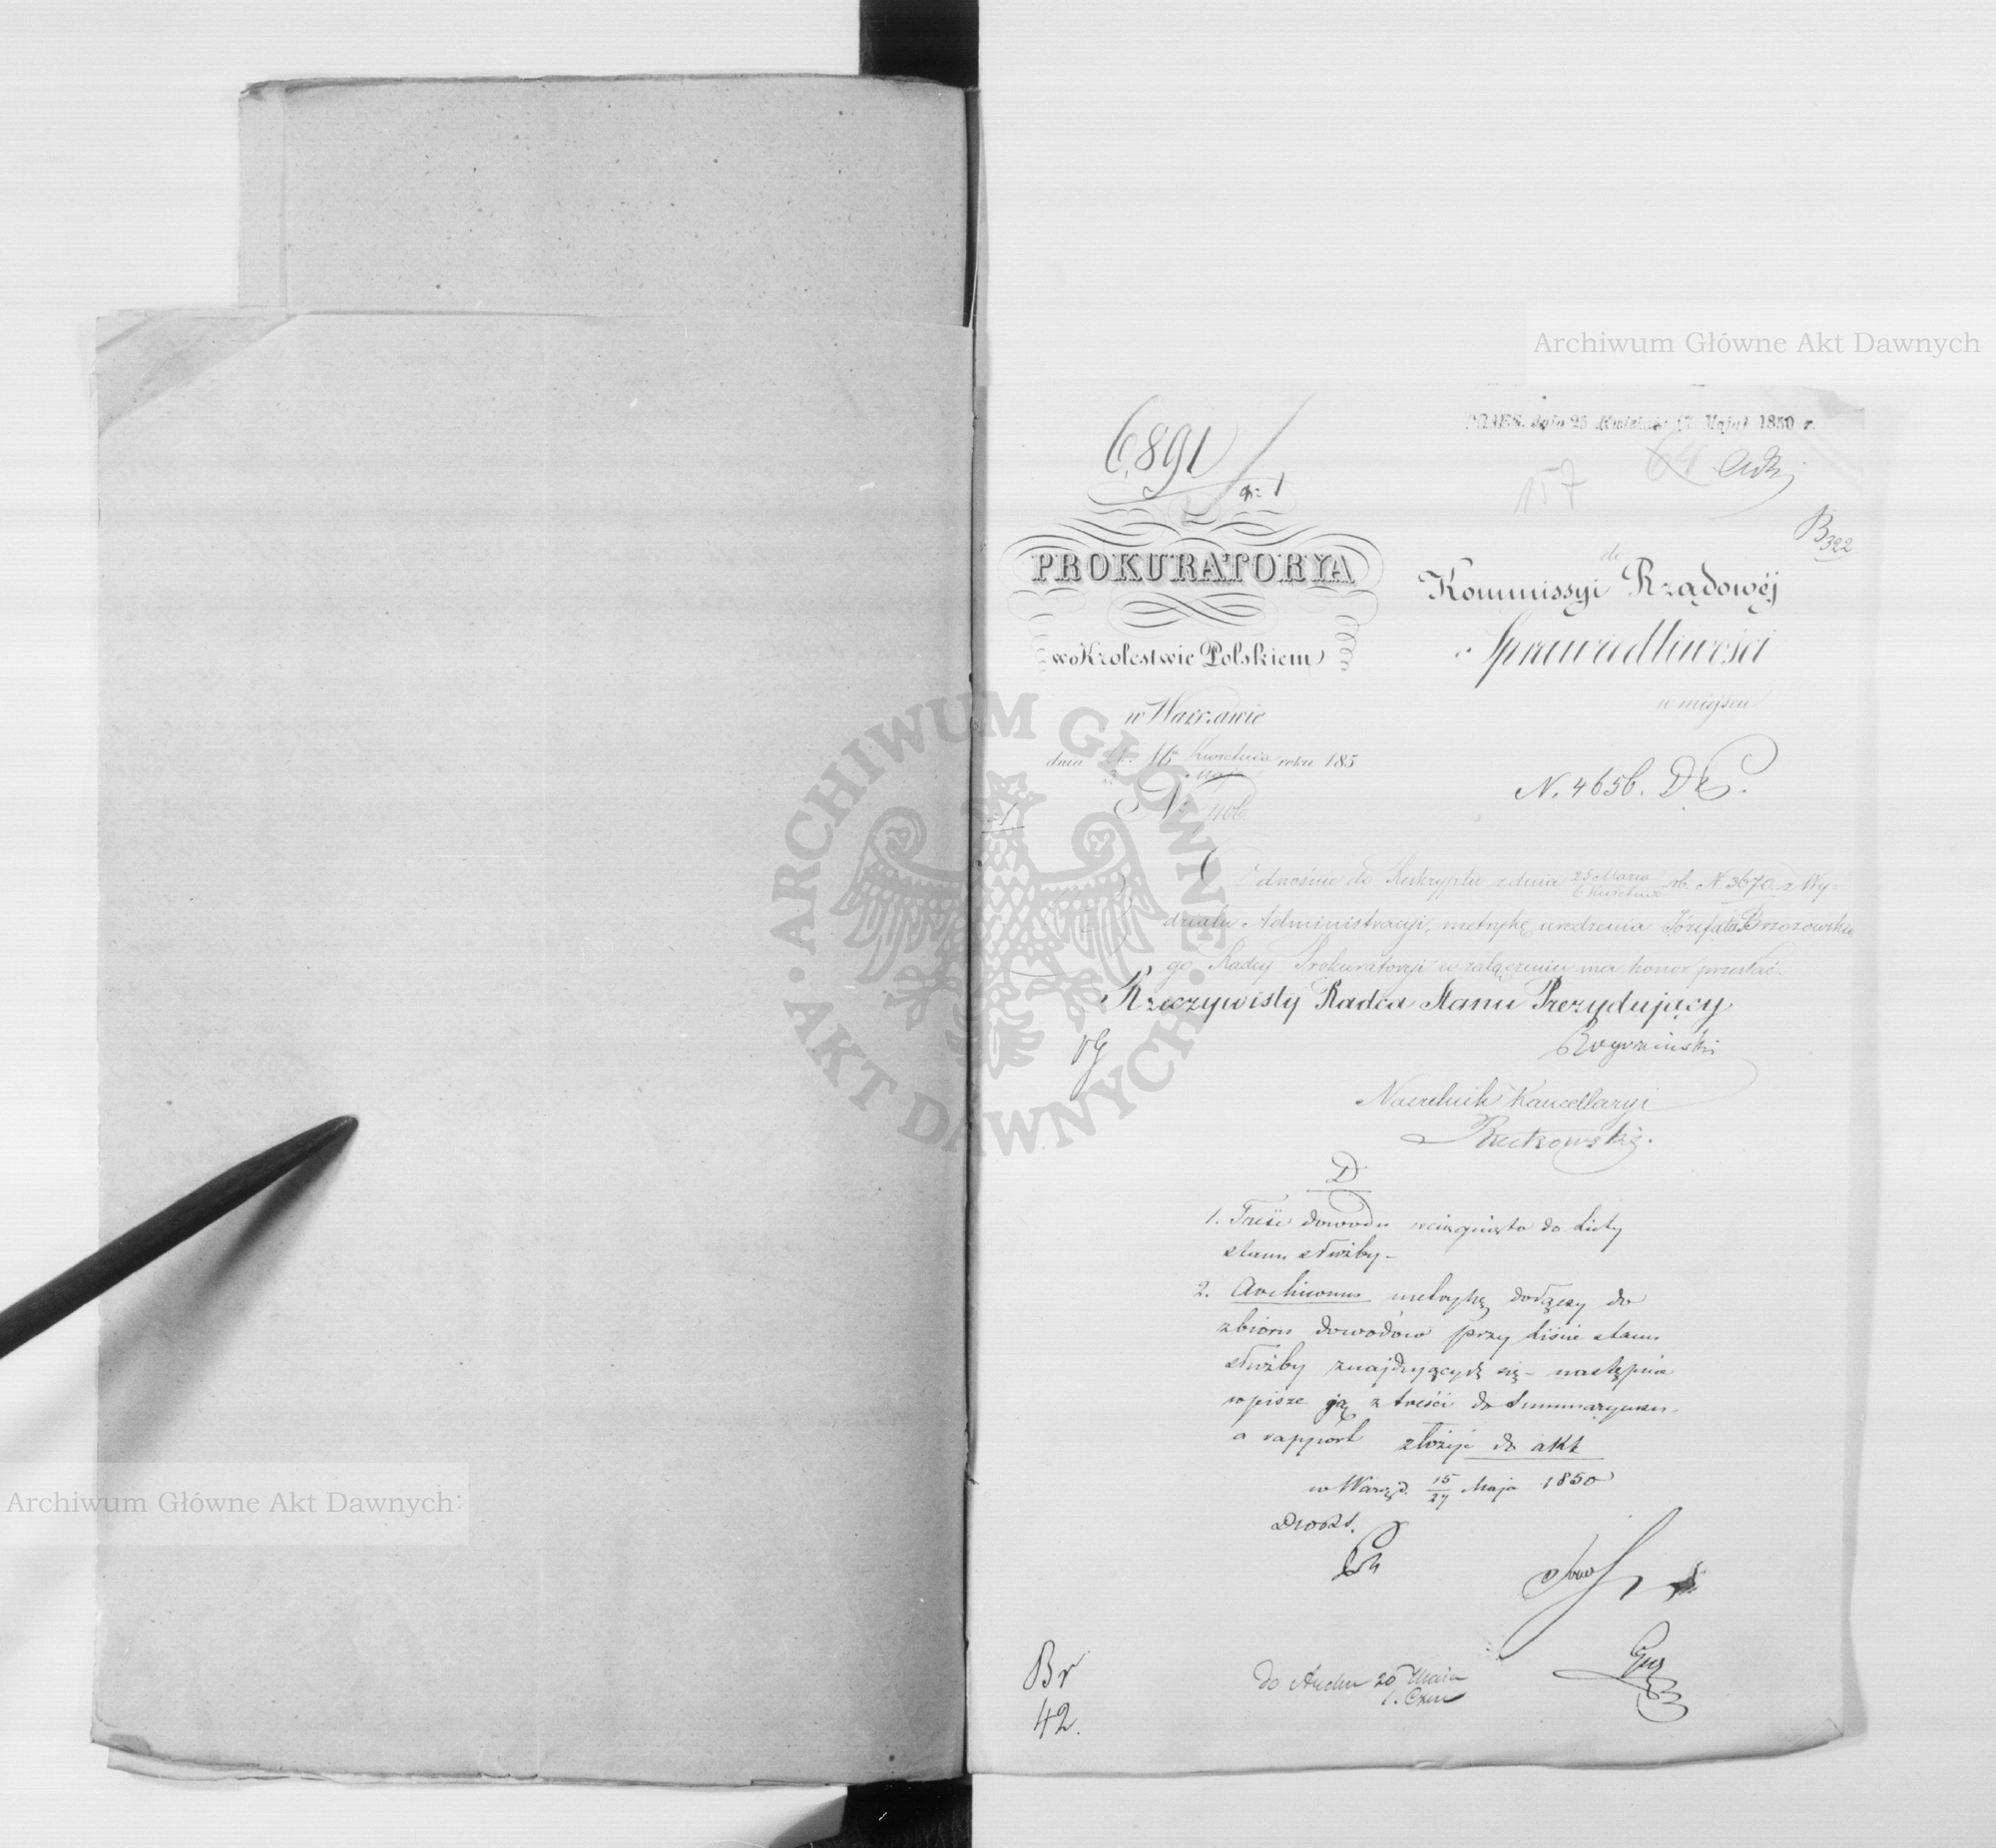 Archiwum Główne Akt Dawnych
PRAES. dnia 25 Kwietnia (7 Maja) 1850 r.
6891
157
B322
PROKURATORYA
w Krolestwie Polskiem
do
Kommissyi Rządowéj
Sprawiedliwości
w miejscu
w Warszawie
dnia Kwietnia Maja roku 185
N. 4656.
Odnośnie do Reskryptu z dnia 25 Marca 6 Kwietnia rb. N. 3670 z Wy-
działu Administracyi, metrykę urodzenia Józefata Brzozowskie
go Radcy Prokuratoryi w załączeniu ma honor przesłać.
Rzeczywisty Radca Stanu Prezydujący
Naczelnik Kancellaryi
D
1. Treść dowodu wciągnięto do Listy
stanu służby-
2. Archiwum metrykę dołączy do
zbioru dowodów przy Liście stanu
służby znajdujących się - następnie
wpisze ją z treści do Summaryusza
a rapport złożyć do akt
w Warsz. d. 15/27 Maja 1850
Br
42.
do 20 Maja
1. Czer
ARCHIWUM GŁÓWNE AKT DAWNYCH
Archiwum Główne Akt Dawnych